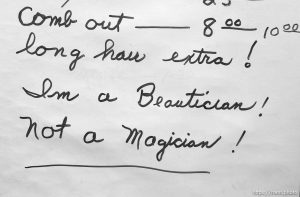 Comb out —— 8 00 — 10 00
long hair extra!
Im a Beautician!
Not a Magician!